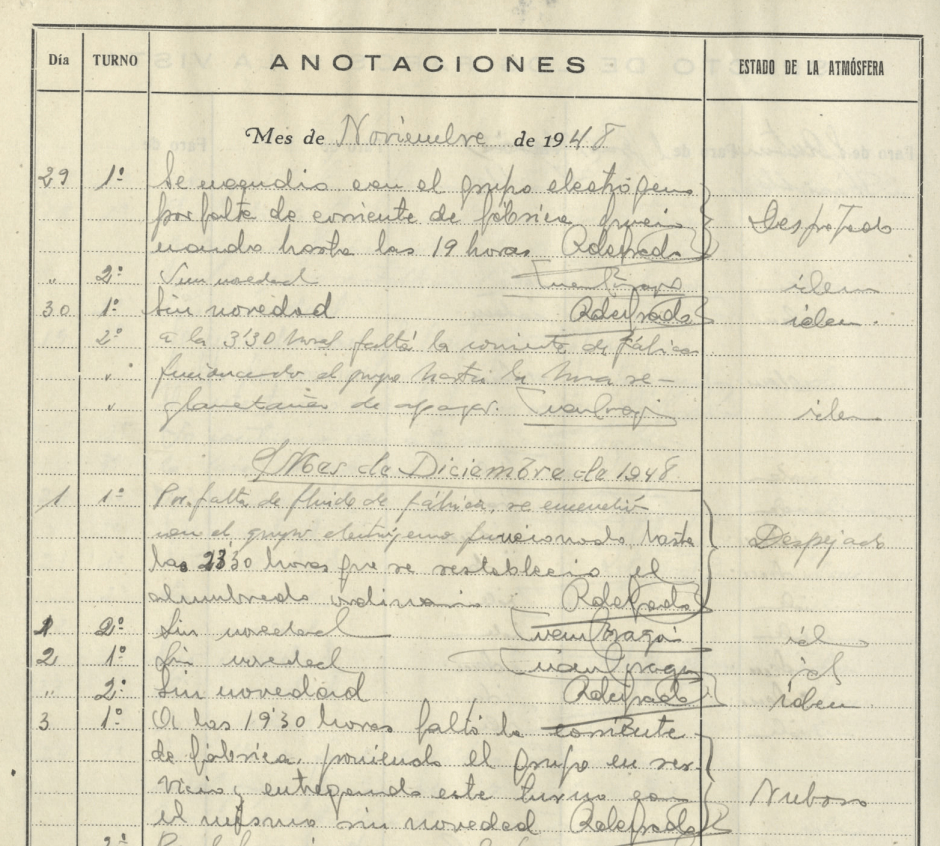 Día TURNO ANOTACIONES ESTADO DE LA ATMÓSFERA
Mes de Noviembre de 1948
29 1º Se encendio con el grupo electrógeno
por falta de corriente de fábrica funcio
nando hasta las 19 horas R Delprado Despejado
" 2º Sin novedad Juan idem
30 1º Sin novedad R Delprado idem.
2º a la 3'30 horas faltá la corriente de fábrica
" funcionando el grupo hasta la hora re-
" glamentaria de apagar. Juan idem
Mes de Diciembre de 1948
1 1º Por falta de fluido de fábrica, se encendió
con el grupo electrógeno funcionando hasta Despejado
las 23'30 horas que se restablecio el
alumbrado ordinario R Delprado
1 2º Sin novedad Juan id
2 1º Sin novedad Juan id
" 2º Sin novedad R Delprado idem
3 1º A las 19'30 horas faltó la corriente
de fábrica, poniendo el grupo en ser-
vicio y entregando este turno con Nuboso
el mismo sin novedad R Delprado
2º